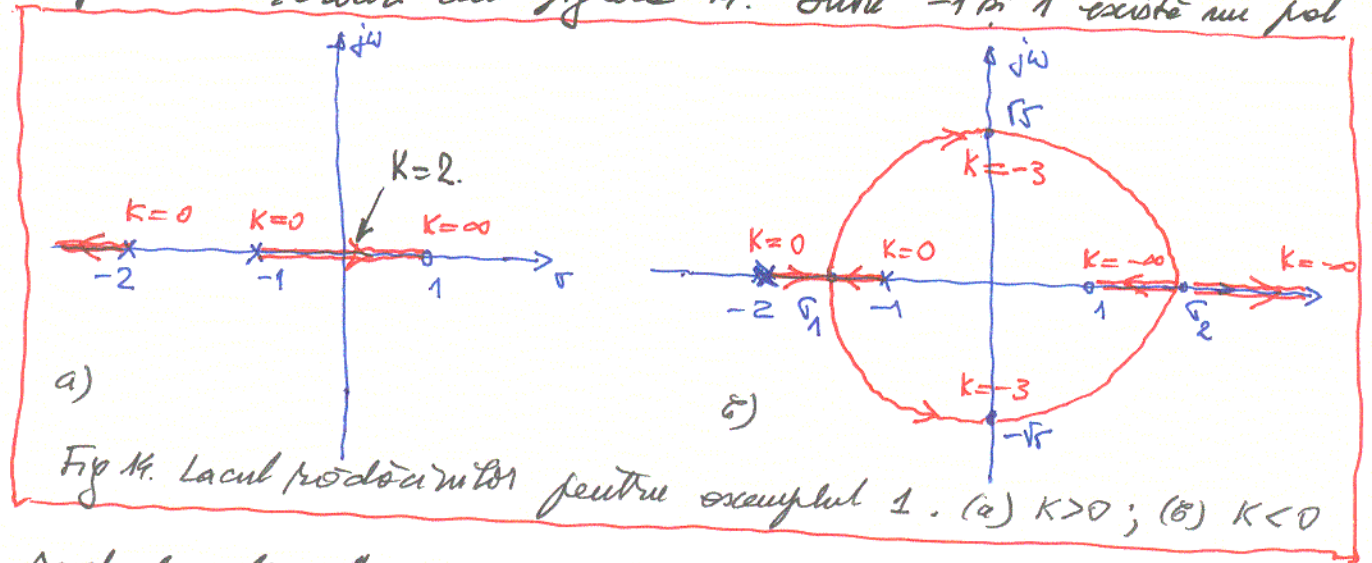 figura 14. Între -1 și 1 există un pol
jω
K=2.
K=0 K=0 K=∞
-2 -1 1 σ
a)
jω
√5
K=-3
K=0 K=0 K=-∞ K=-∞
-2 σ1 -1 1 σ2
K=-3
-√5
б)
Fig 14. Locul rădăcinilor pentru exemplul 1. (a) K>0; (б) K<0